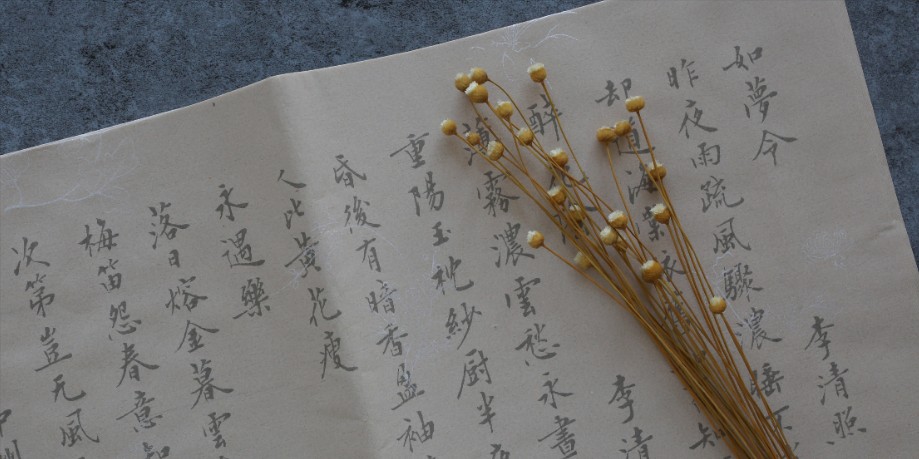 如夢令 李清照
昨夜雨疏風驟濃睡不
却道海棠依舊知
醉 李清
薄霧濃雲愁永晝
重陽玉枕紗厨半
昏後有暗香盈袖
人比黃花瘦
永遇樂
落日熔金暮雲
梅笛怨春意知
次第豈无風